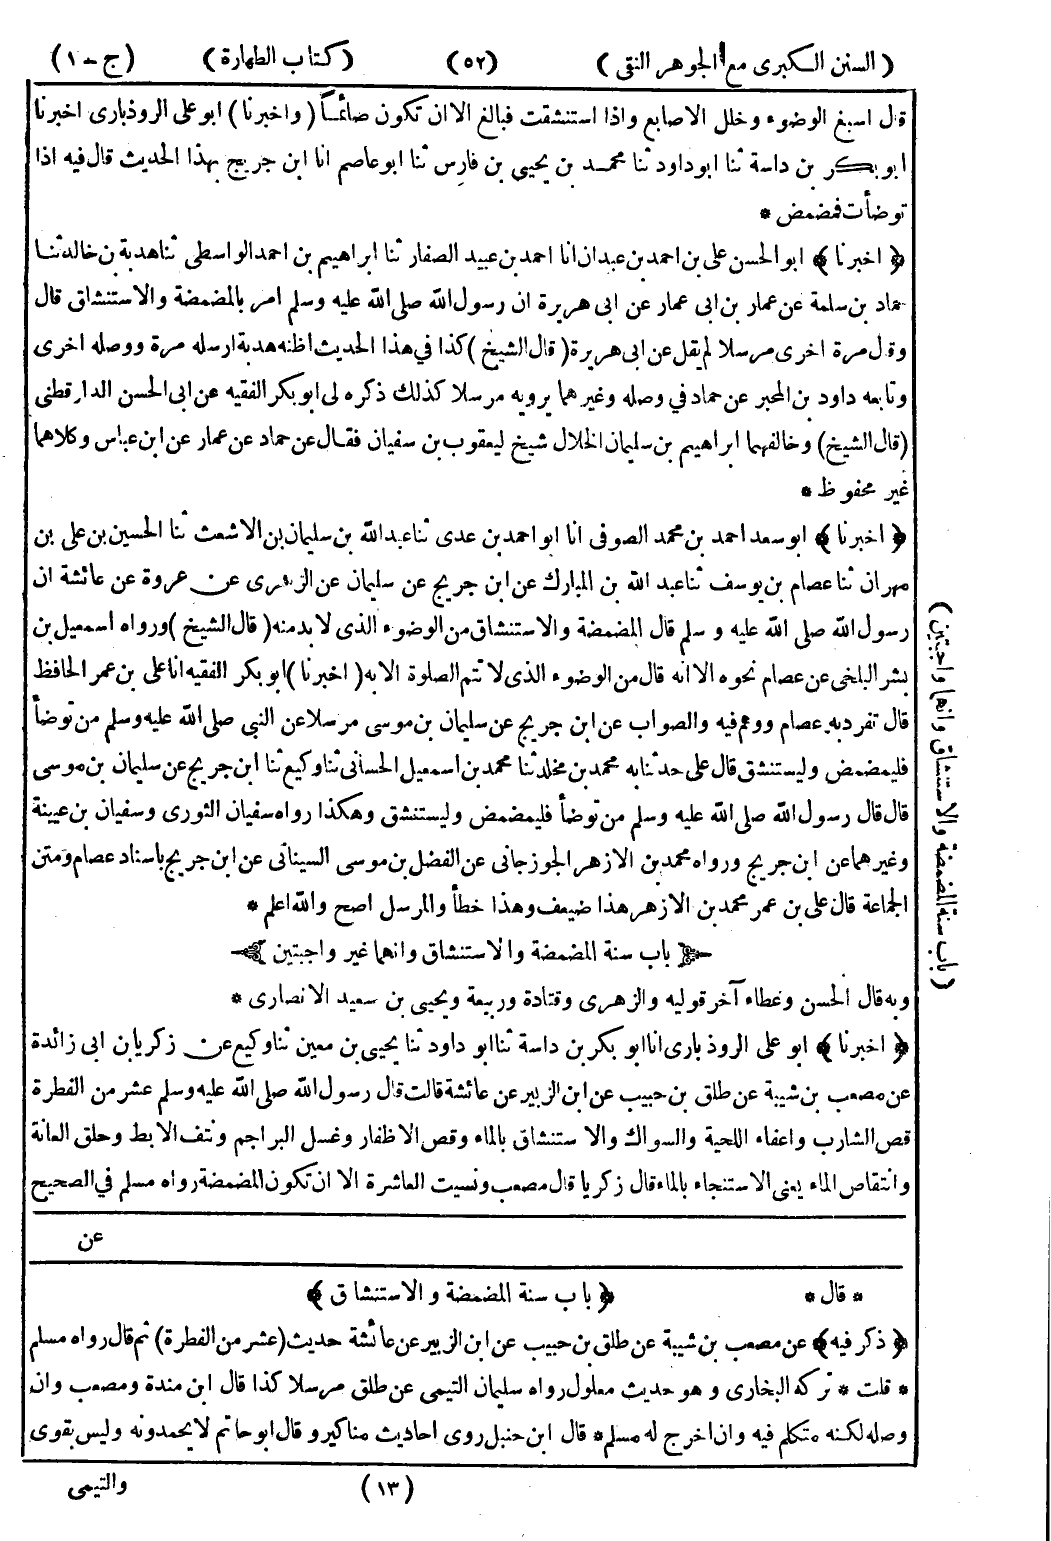 ( السنن الكبرى مع الجوهر النقى ) (٥٢) ( كتاب الطهارة ) (ج - ١)
قال اسبغ الوضوء وخلل الاصابع واذا استنشقت فبالغ الا ان تكون صائماً ( واخبرنا ) ابو على الروذبارى اخبرنا
ابو بكر بن داسة ثنا ابو داود ثنا محمد بن يحيى بن فارس ثنا ابو عاصم انا ابن جريج بهذا الحديث قال فيه اذا
توضأت فمضمض *
﴿ اخبرنا ﴾ ابو الحسن على بن احمد بن عبدان انا احمد بن عبيد الصفار ثنا ابراهيم بن احمد الواسطى ثنا هدبة بن خالد ثنا
حماد بن سلمة عن عمار بن ابى عمار عن ابى هريرة ان رسول الله صلى الله عليه وسلم امر بالمضمضة والاستنشاق قال
وقال مرة اخرى مرسلا لم يقل عن ابى هريرة ( قال الشيخ ) كذا في هذا الحديث اظنه هدبة ارسله مرة ووصله اخرى
وتابعه داود بن المحبر عن حماد في وصله وغيرهما يرويه مرسلا كذلك ذكره لى ابو بكر الفقيه عن ابى الحسن الدارقطنى
(قال الشيخ) وخالفهما ابراهيم بن سليمان الخلال شيخ ليعقوب بن سفيان فقال عن حماد عن عمار عن ابن عباس وكلاهما
غير محفوظ *
﴿ اخبرنا ﴾ ابو سعد احمد بن محمد الصوفى انا ابو احمد بن عدى ثنا عبد الله بن سليمان بن الاشعث ثنا الحسين بن على بن
مهران ثنا عصام بن يوسف ثنا عبد الله بن المبارك عن ابن جريج عن سليمان عن الزهرى عن عروة عن عائشة ان
رسول الله صلى الله عليه و سلم قال المضمضة والاستنشاق من الوضوء الذى لا بد منه ( قال الشيخ ) ورواه اسمعيل بن
بشر البلخى عن عصام نحوه الا انه قال من الوضوء الذى لا تتم الصلوة الا به ( اخبرنا ) ابو بكر الفقيه انا على بن عمر الحافظ
قال تفرد به عصام ووهم فيه والصواب عن ابن جريج عن سليمان بن موسى مرسلا عن النبى صلى الله عليه وسلم من توضأ
فليمضمض وليستنشق قال على حدثنا به محمد بن مخلد ثنا محمد بن اسمعيل الحسانى ثنا وكيع ثنا ابن جريج عن سليمان بن موسى
قال قال رسول الله صلى الله عليه وسلم من توضأ فليمضمض وليستنشق وهكذا رواه سفيان الثورى وسفيان بن عيينة
وغيرهما عن ابن جريج ورواه محمد بن الازهر الجوزجانى عن الفضل بن موسى السينانى عن ابن جريج باسناد عصام ومتن
الجماعة قال على بن عمر محمد بن الازهر هذا ضعيف وهذا خطأ والمرسل اصح والله اعلم *
باب سنة المضمضة والاستنشاق وانهما غير واجبتين
وبه قال الحسن وعطاء آخر قوليه والزهرى وقتادة وربيعة ويحيى بن سعيد الانصارى *
﴿ اخبرنا ﴾ ابو على الروذبارى انا ابو بكر بن داسة ثنا ابو داود ثنا يحيى بن معين ثنا وكيع عن زكريا بن ابى زائدة
عن مصعب بن شيبة عن طلق بن حبيب عن ابن الزبير عن عائشة قالت قال رسول الله صلى الله عليه وسلم عشر من الفطرة
قص الشارب واعفاء اللحية والسواك والاستنشاق بالماء وقص الاظفار وغسل البراجم ونتف الابط وحلق العانة
وانتقاص الماء يعنى الاستنجاء بالماء قال زكريا قال مصعب ونسيت العاشرة الا ان تكون المضمضة رواه مسلم في الصحيح
عن
* قال * ﴿ باب سنة المضمضة والاستنشاق ﴾
﴿ ذكر فيه ﴾ عن مصعب بن شيبة عن طلق بن حبيب عن ابن الزبير عن عائشة حديث (عشر من الفطرة) ثم قال رواه مسلم
* قلت * تركه البخارى و هو حديث معلول رواه سليمان التيمى عن طلق مرسلا كذا قال ابن مندة ومصعب وان
وصله لكنه متكلم فيه وان اخرج له مسلم * قال ابن حنبل روى احاديث مناكير وقال ابو حاتم لا يحمدونه وليس بقوى
(١٣) والتيمى
( باب سنة المضمضة والاستنشاق وانهما واجبتين )